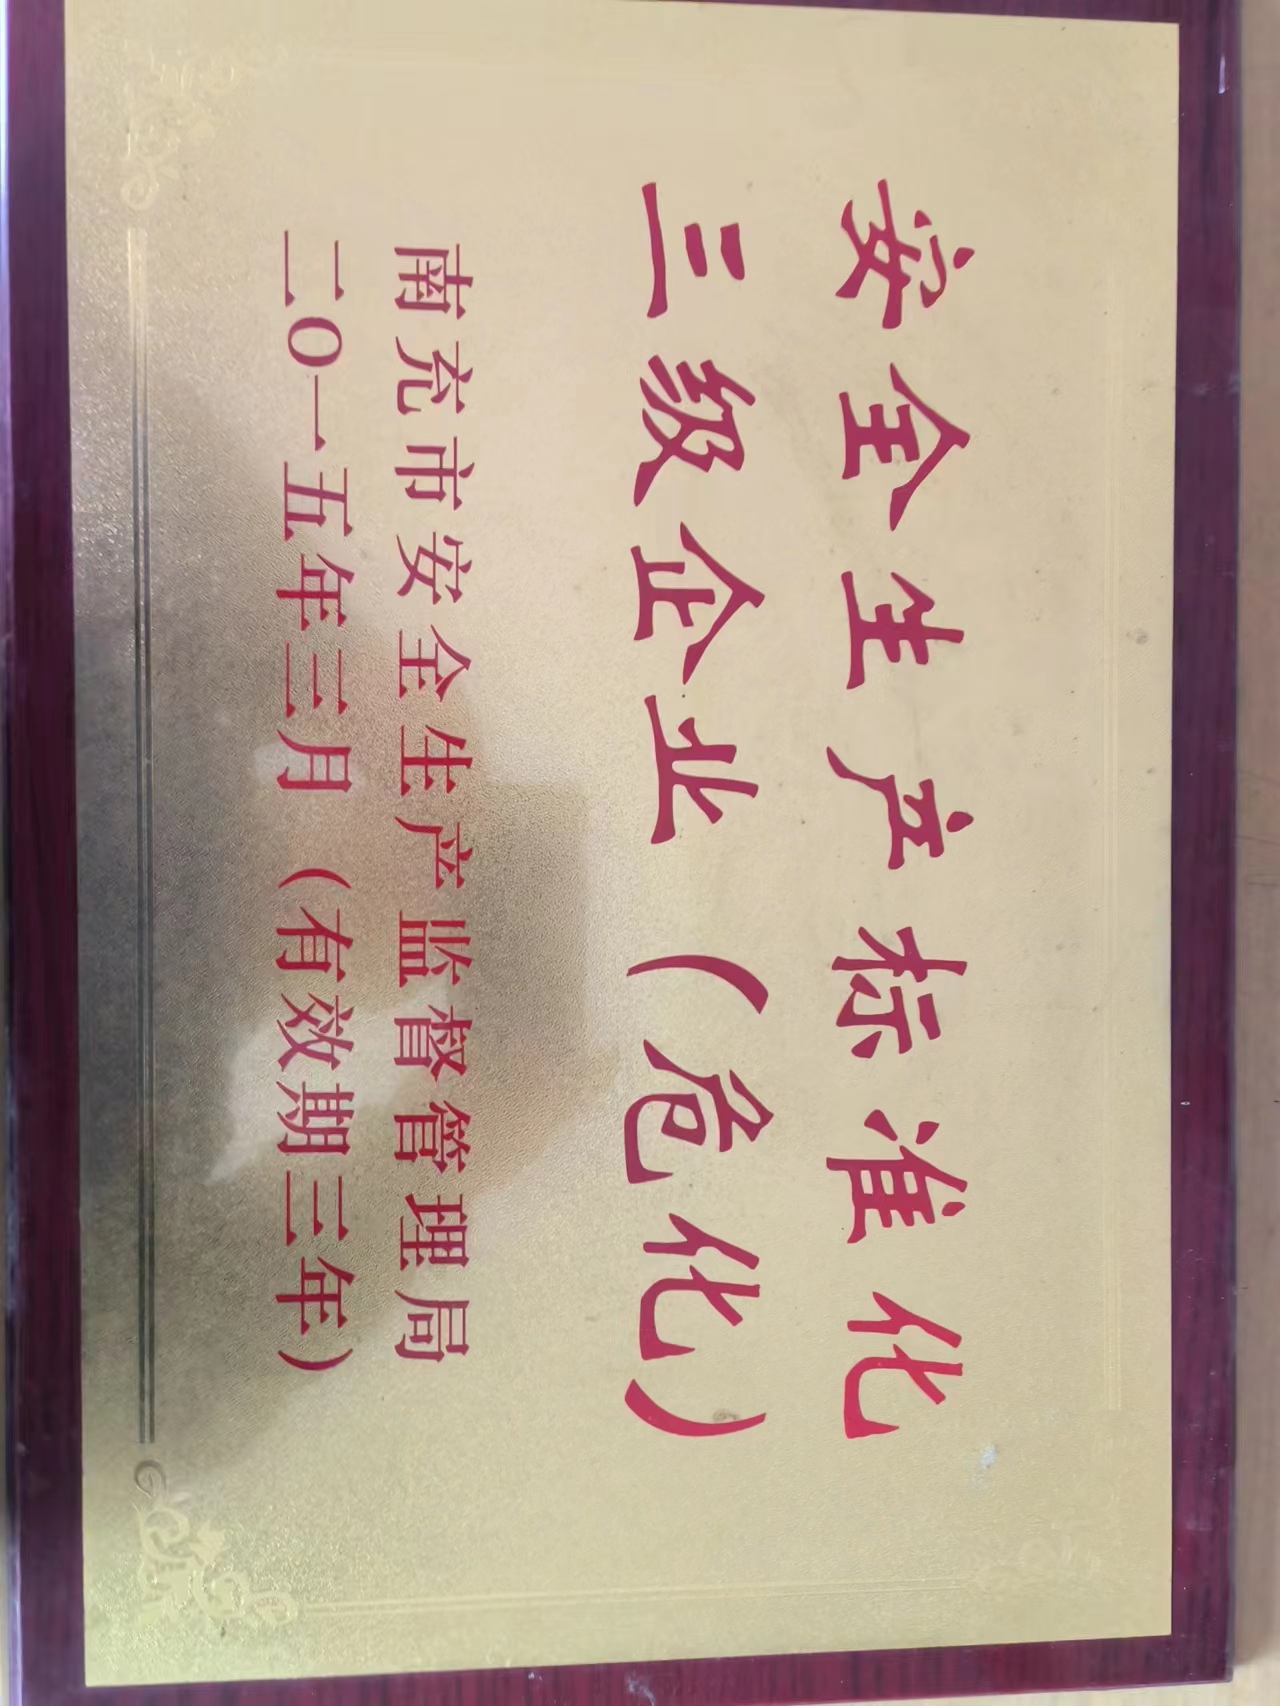 安全生产标准化
三级企业（危化）
南充市安全生产监督管理局
二O一五年三月（有效期三年）